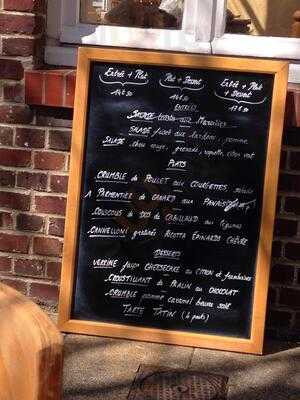 Entrée + Plat Plat + Dessert Entrée + Plat + Dessert
14€50 14€50 17€50
ENTRÉES
SALADE aux lardons, pomme
SALADE chou rouge, grenade, roquette, citron vert
PLATS
CRUMBLE de POULET aux COURGETTES salade
1 PARMENTIER de CANARD aux PANAIS
COUSCOUS de DOS de CABILLAUD aux légumes
CANNELLONI gratinés RICOTTA ÉPINARDS CHÈVRE
DESSERTS
VERRINE façon CHEESECAKE au CITRON et framboises
CROUSTILLANT de PRALIN au CHOCOLAT
CRUMBLE pomme caramel beurre salé
TARTE TATIN (4 parts)